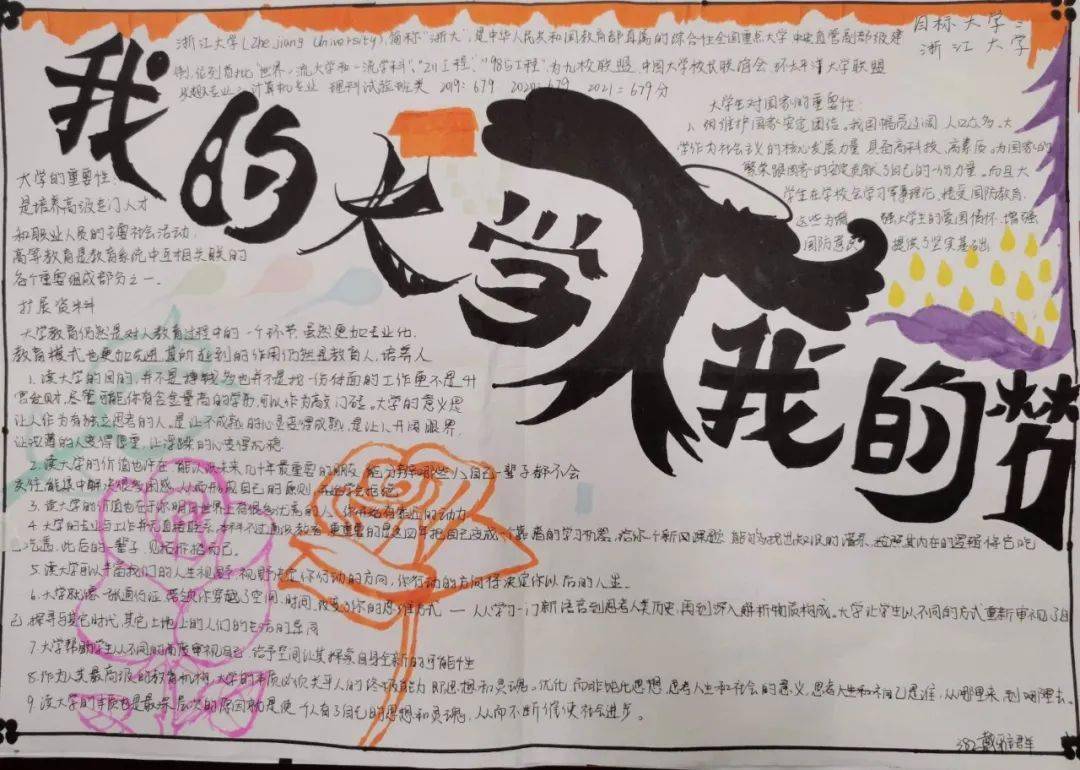 我的大学 我的梦
目标大学：
浙江大学
浙江大学(Zhejiang University),简称"浙大",是中华人民共和国教育部直属的综合性全国重点大学 中央直管副部级建
制,位列首批"世界一流大学和一流学科","211工程","985工程",为九校联盟、中国大学校长联谊会、环太平洋大学联盟
计算机专业 理科试验班类 2019:679 2020:679 2021:679分
大学生对国家的重要性：
1、维护国家安定团结。我国幅员辽阔 人口众多。大
学作为社会主义的核心发展力量 具备高科技、高素质。为国家的
繁荣跟国家的安定贡献了自己的一份力量。而且大
学生在学校会学习军事理论,接受国防教育,
这些为 强大学生的爱国情怀、增强
国防意识 提供了坚实基础
大学的重要性：
是培养高级专门人才
和职业人员的主要社会活动,
高等教育是教育系统中互相关联的
各个重要组成部分之一。
扩展资料
大学教育仍然是对人教育过程中的一个环节 虽然更加专业化,
教育模式也更加先进 其所起到的作用仍然是教育人、培养人
1.读大学的目的,并不是挣钱 也并不是找一份体面的工作更不是升
官发财,尽管可能你有含金量高的学历,可以作为敲门砖。大学的意义是
让人作为有独立思考的人。是让不成熟的心变得成熟,是让人开阔眼界,
让浅薄的人变得厚重,让浮躁的心变得沉稳
2.读大学的价值也许在 能认识未来几十年最重要的朋友 能 自己一辈子都不会
交往,能集中解决很多困惑,从而形成自己的原则
3、读大学的价值也在于你明白世界上有很多优秀的人,你开始有靠近的动力
4、大学的专业与工作并无直接联系,本科不过通识教育 更重要的是这四年把自己变成一个靠谱的学习机器。给你一个新问题 能够找出知识的谱系,按照其内在的逻辑
此后的一辈子,
5.读大学可以丰富我们的人生视野 视野决定你行动的方向,你行动的方向将决定你以后的人生
6.大学就像一张通行证,带领你穿越了空间、时间,改变了你的思维方式 —— 从学习一门新语言到思考人类历史,再到深入解析物质构成。大学让学生以不同的方式重新审视了自
己,探寻与其它时代,其它土地上的人们的生活的异同
7.大学帮助学生从不同的角度审视自己 给予空间让其探索自身全新的可能性
8.作为人类最高级的教育机构,大学的本质必须关乎人的终极能力 即思想和灵魂。优化 而非钝化思想,思考人生和社会的意义,思考人生和自己是谁,从哪里来,到哪里去。
9.读大学的本质也是最深层次的原因就是使一个人有了自己的思想和灵魂,从而不断催使社会进步。
382 戴雅群